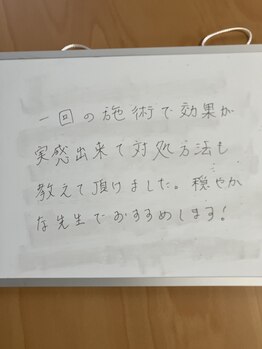 一回の施術で効果が
実感出来て対処方法も
教えて頂けました。穏やか
な先生でおすすめします!